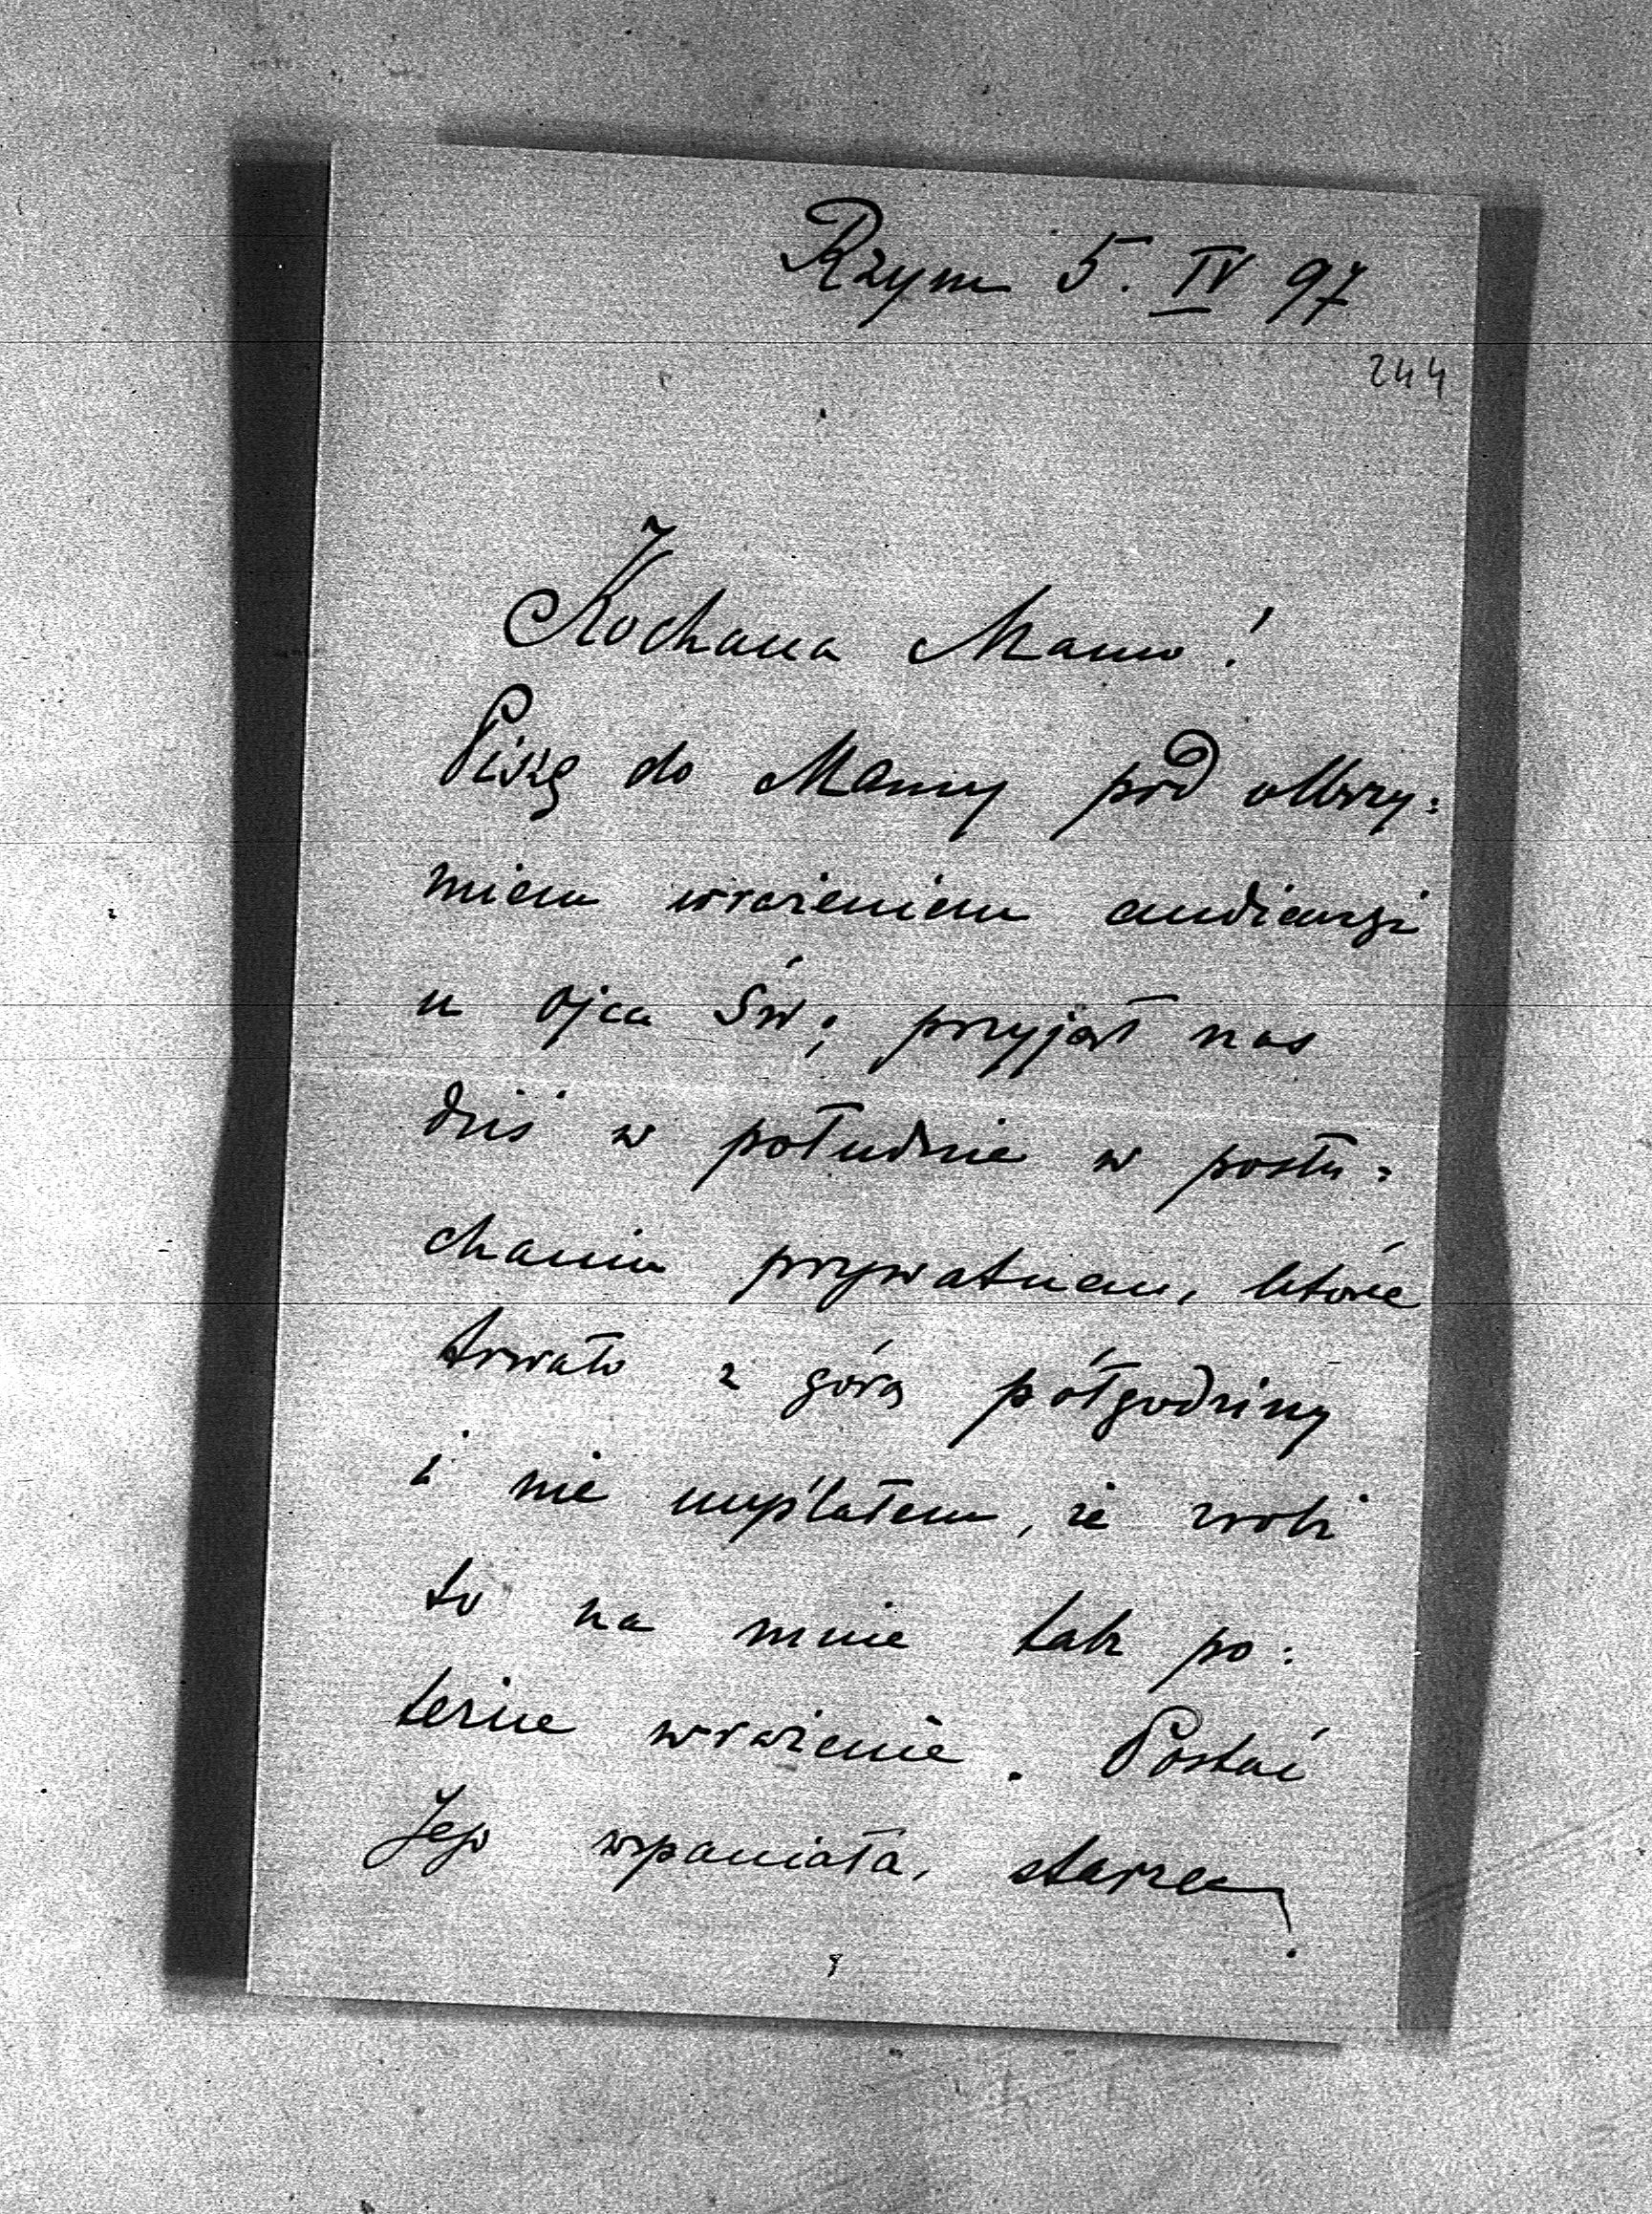 Rzym 5. IV 97
244
Kochana Mamo!
Piszę do Mamy pod olbrzy=
miem wrażeniem audiencji
u Ojca Św; przyjął nas
dziś w południe w posłu=
chaniu prywatnem, które
trwało z górą półgodziny
i nie myślałem, że zrobi
to na mnie tak po=
tężne wrażenie. Postać
Jego wspaniała, starzec